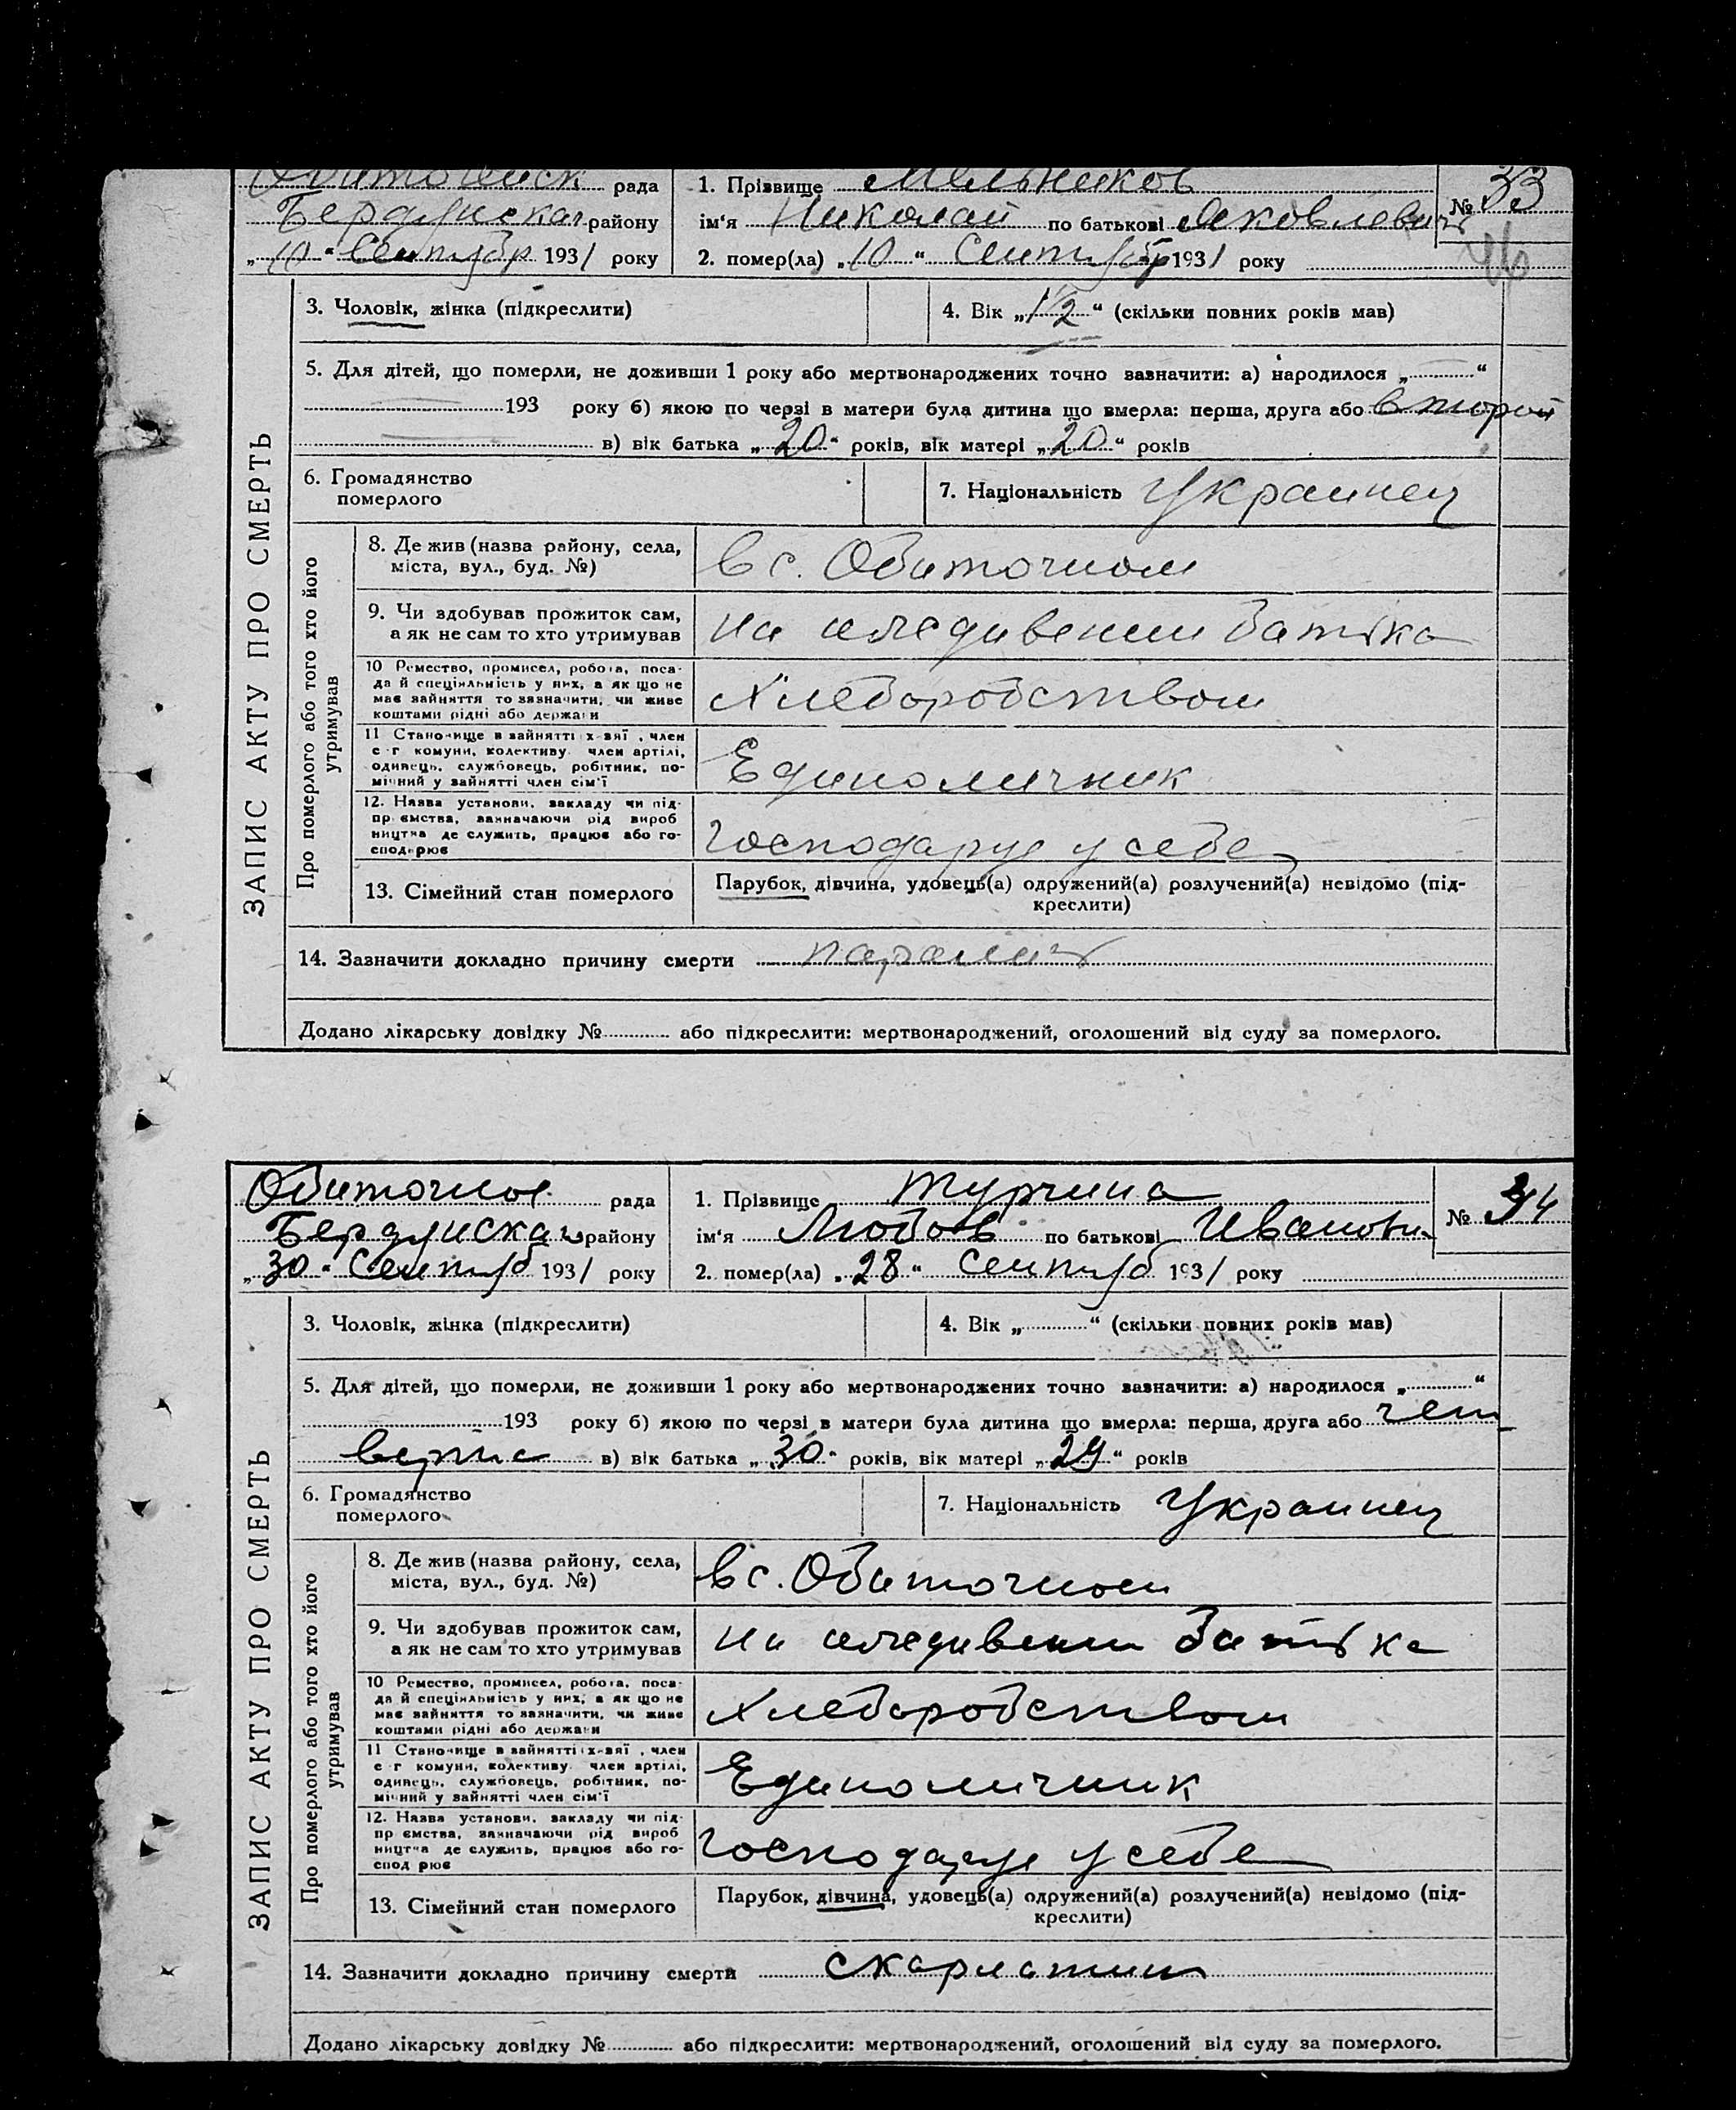 Обиточенск рада 1. Прізвище Мельников № 33
Бердянска району ім‘я Николай по батькові Яковлевич 46
„10“ Сентябр 1931 року 2. помер(ла) „10“ Сентябр 1931 року
3. Чоловік, жінка (підкреслити) 4. Вік „1/2“ (скільки повних років мав)
5. Для дітей, що померли, не доживши 1 року або мертвонароджених точно зазначити: а) народилося „ “
193 року б) якою по черзі в матери була дитина що вмерла: перша, друга або второй
в) вік батька „20“ років, вік матері „20“ років
6. Громадянство 7. Національність Украинец
померлого
ЗАПИС АКТУ ПРО СМЕРТЬ
Про померлого або того хто його
утримував
8. Де жив (назва району, села, в с. Обиточном
міста, вул., буд. №)
9. Чи здобував прожиток сам, на иждивении батька
а як не сам то хто утримував
10 Ремество, промисел, робота, поса-
да й спеціяльність у них, а як що не Хлеборобством
має зайняття то зазначити, чи живе
коштами рідні або держави
11 Становище в зайнятті х-вяї, член
с-г комуни, колективу член артілі, Единоличник
одинець, службовець, робітник, по-
мічний у зайнятті член сім‘ї
12. Назва установи, закладу чи під-
пр ємства, зазначаючи рід вироб господарує у себе
ництва де служить, працює або го-
сподарює
13. Сімейний стан померлого Парубок, дівчина, удовець(а) одружений(а) розлучений(а) невідомо (під-
креслити)
14. Зазначити докладно причину смерти паралич
Додано лікарську довідку № або підкреслити: мертвонароджений, оголошений від суду за померлого.
Обиточное рада 1. Прізвище Турчина № 34
Бердянска району ім‘я Любовь по батькові Ивановн
„30“ Сентяб 1931 року 2. помер(ла) „28“ Сентяб 1931 року
3. Чоловік, жінка (підкреслити) 4. Вік „ “ (скільки повних років мав)
5. Для дітей, що померли, не доживши 1 року або мертвонароджених точно зазначити: а) народилося „ “
193 року б) якою по черзі в матери була дитина що вмерла: перша, друга або чет
в) вік батька „30“ років, вік матері „29“ років
6. Громадянство 7. Національність Украинец
померлого
ЗАПИС АКТУ ПРО СМЕРТЬ
Про померлого або того хто його
утримував
8. Де жив (назва району, села, в с. Обиточном
міста, вул., буд. №)
9. Чи здобував прожиток сам, на иждивении батька
а як не сам то хто утримував
10 Ремество, промисел, робота, поса-
да й спеціяльність у них, а як що не Хлеборобством
має зайняття то зазначити, чи живе
коштами рідні або держави
11 Становище в зайнятті х-вяї, член
с-г комуни, колективу член артілі, Единоличник
одинець, службовець, робітник, по-
мічний у зайнятті член сім‘ї
12. Назва установи, закладу чи під-
пр ємства, зазначаючи рід вироб господарує у себе
ництва де служить, працює або го-
спод рює
13. Сімейний стан померлого Парубок, дівчина, удовець(а) одружений(а) розлучений(а) невідомо (під-
креслити)
14. Зазначити докладно причину смерти скарлатин
Додано лікарську довідку № або підкреслити: мертвонароджений, оголошений від суду за померлого.